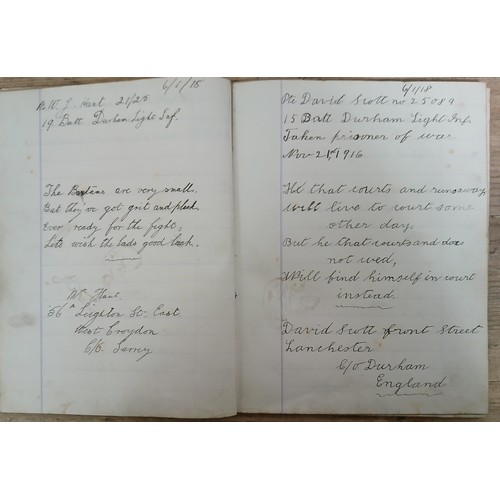 6/1/18
Pte W. J. Hart 21/25
19 Batt Durham Light Inf.
The Bantams are very small,
But they've got grit and pluck
Ever ready for the fight,
Lets wish the lads good luck.
Wm Hart
56A Leighton St- East
West Croydon
C/O. Surrey
6/1/18
Pte David Scott no 25089
15 Batt Durham Light Inf.
Taken prisoner of war
Nov 21st 1916
He that courts and runs away
Will live to court some
other day.
But he that courts and does
not wed,
Will find himself in court
instead.
David Scott Front Street
Lanchester
C/o Durham
England